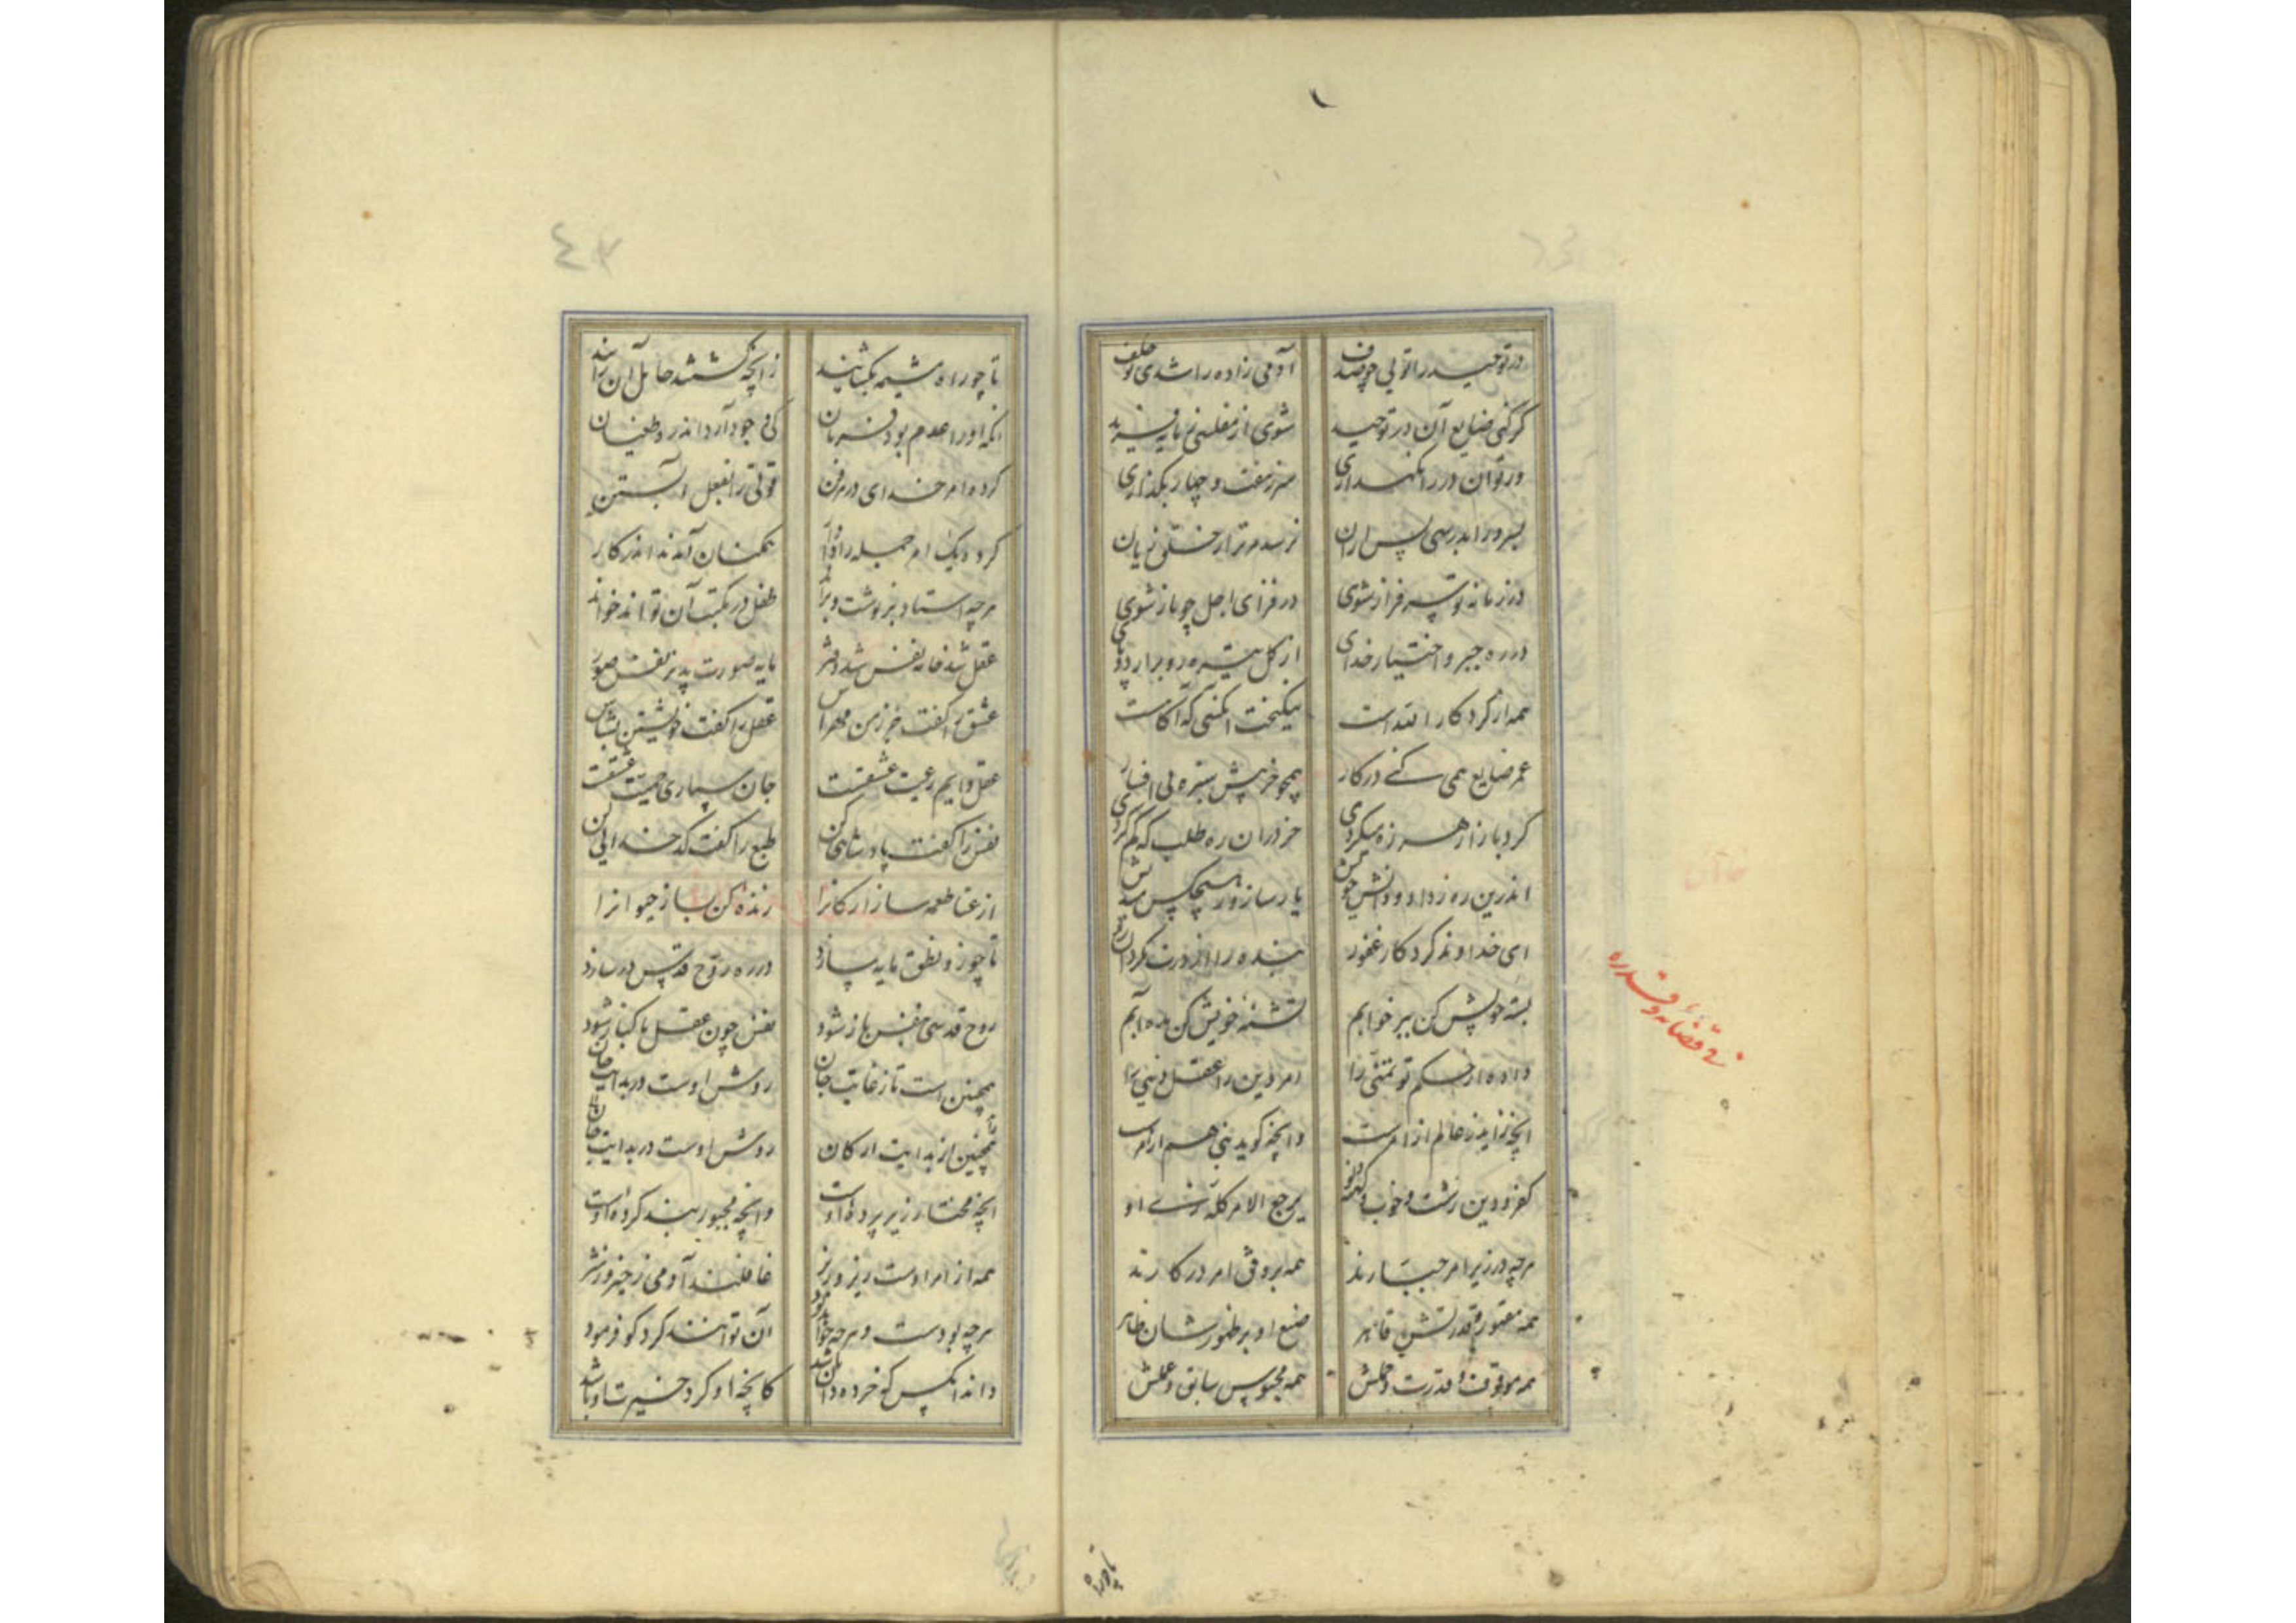 در توحید را تویی چو صدف
آدمی زاده را شدی تو خلف
گر کنی ضایع آن در توحید
شوی از مفلسی ز مایه فرید
ور تو آن در را نگهداری
سر ز هفت و چهار بگذاری
بسرور ابد رسی پس از آن
نرسد مر ترا ز خلق زیان
در زمانه تو سرفراز شوی
در فزای ازل چو باز شوی
در ره جبر و اختیار خدای
از گل تیره رو برآر دو پای
همه از کردگار
نیکبخت آنکسی که آگاهست
عمر ضایع همی کنی در کار
همچو خر پیش سبزه بی افسار
گرد بازار هرزه میگردی
خر در آن ره طلب که گم کردی
اندرین ره ز داد و دانش خویش
یار ساز و ز هیچکس مندیش
ای خداوند کردگار غفور
بنده را از درت مگردان دور
بسته خویش کن ببر خوابم
تشنه خویش کن مده آبم
داده از حکم تو تمنی را
امر دین را عقل دینی را
آنچه زاید ز عالم از امرست
وانچه گوید نبی هم از امرست
کفر و دین زشت و خوب و کهنه و نو
یرجع الامر کله زی او
هرچه در زیر امر جبارند
همه بر وفق امر در کارند
همه مقهور و قدرتش قاهر
صنع او بر ظهورشان ظاهر
همه موقوف قدرت و حلمش
همه محبوس سابق و علمش
فی قضائه و قدره
تا چو راه
تا چو راه مشیمه بگشایند
زانچه گشتند حامل آن زایند
آنکه او را عدم بود فرمان
کی وجود آرد اندرو طغیان
کرد امر خدای در هر فن
قوتی را بفعل آبستن
کرد دیگ امر جمله را
همگنان آمدند اندر کار
هرچه استاد بر نوشت و براند
طفل در مکتب آن تواند خواند
عقل شد خامه نفس شد دفتر
مایه صورت پذیر نقش صور
عشق را گفت جز ز من مهراس
عقل را گفت خویشتن بشناس
عقل دایم رعیت عشقست
جان سپاری حمیت عشقست
نفس را گفت پادشاهی کن
طبع را گفت کدخدایی کن
از عنا طعمه ساز ارکانرا
زنده کن ساز حیوانرا
تا چو زو نطق مایه پسازد
در ره روح قدس در سازد
روح قدسی بنفس باز شود
نفس چون عقل پاکباز شود
همچنین است تا ز غایت جان
روش اوست در بدایت جان
همچنین از بدایت ارکان
روش اوست در بدایت جان
آنچه مختار زیر پرده اوست
وانچه مجبور بند کرده اوست
همه از امر اوست زیر و زبر
غافلند آدمی ز خیر و ز شر
هرچه بودست و هرچه خواهد بود
آن توانند کرد کو فرمود
داند آنکس که خرده دان باشد
کانچه او کرد خیرت آن باشد